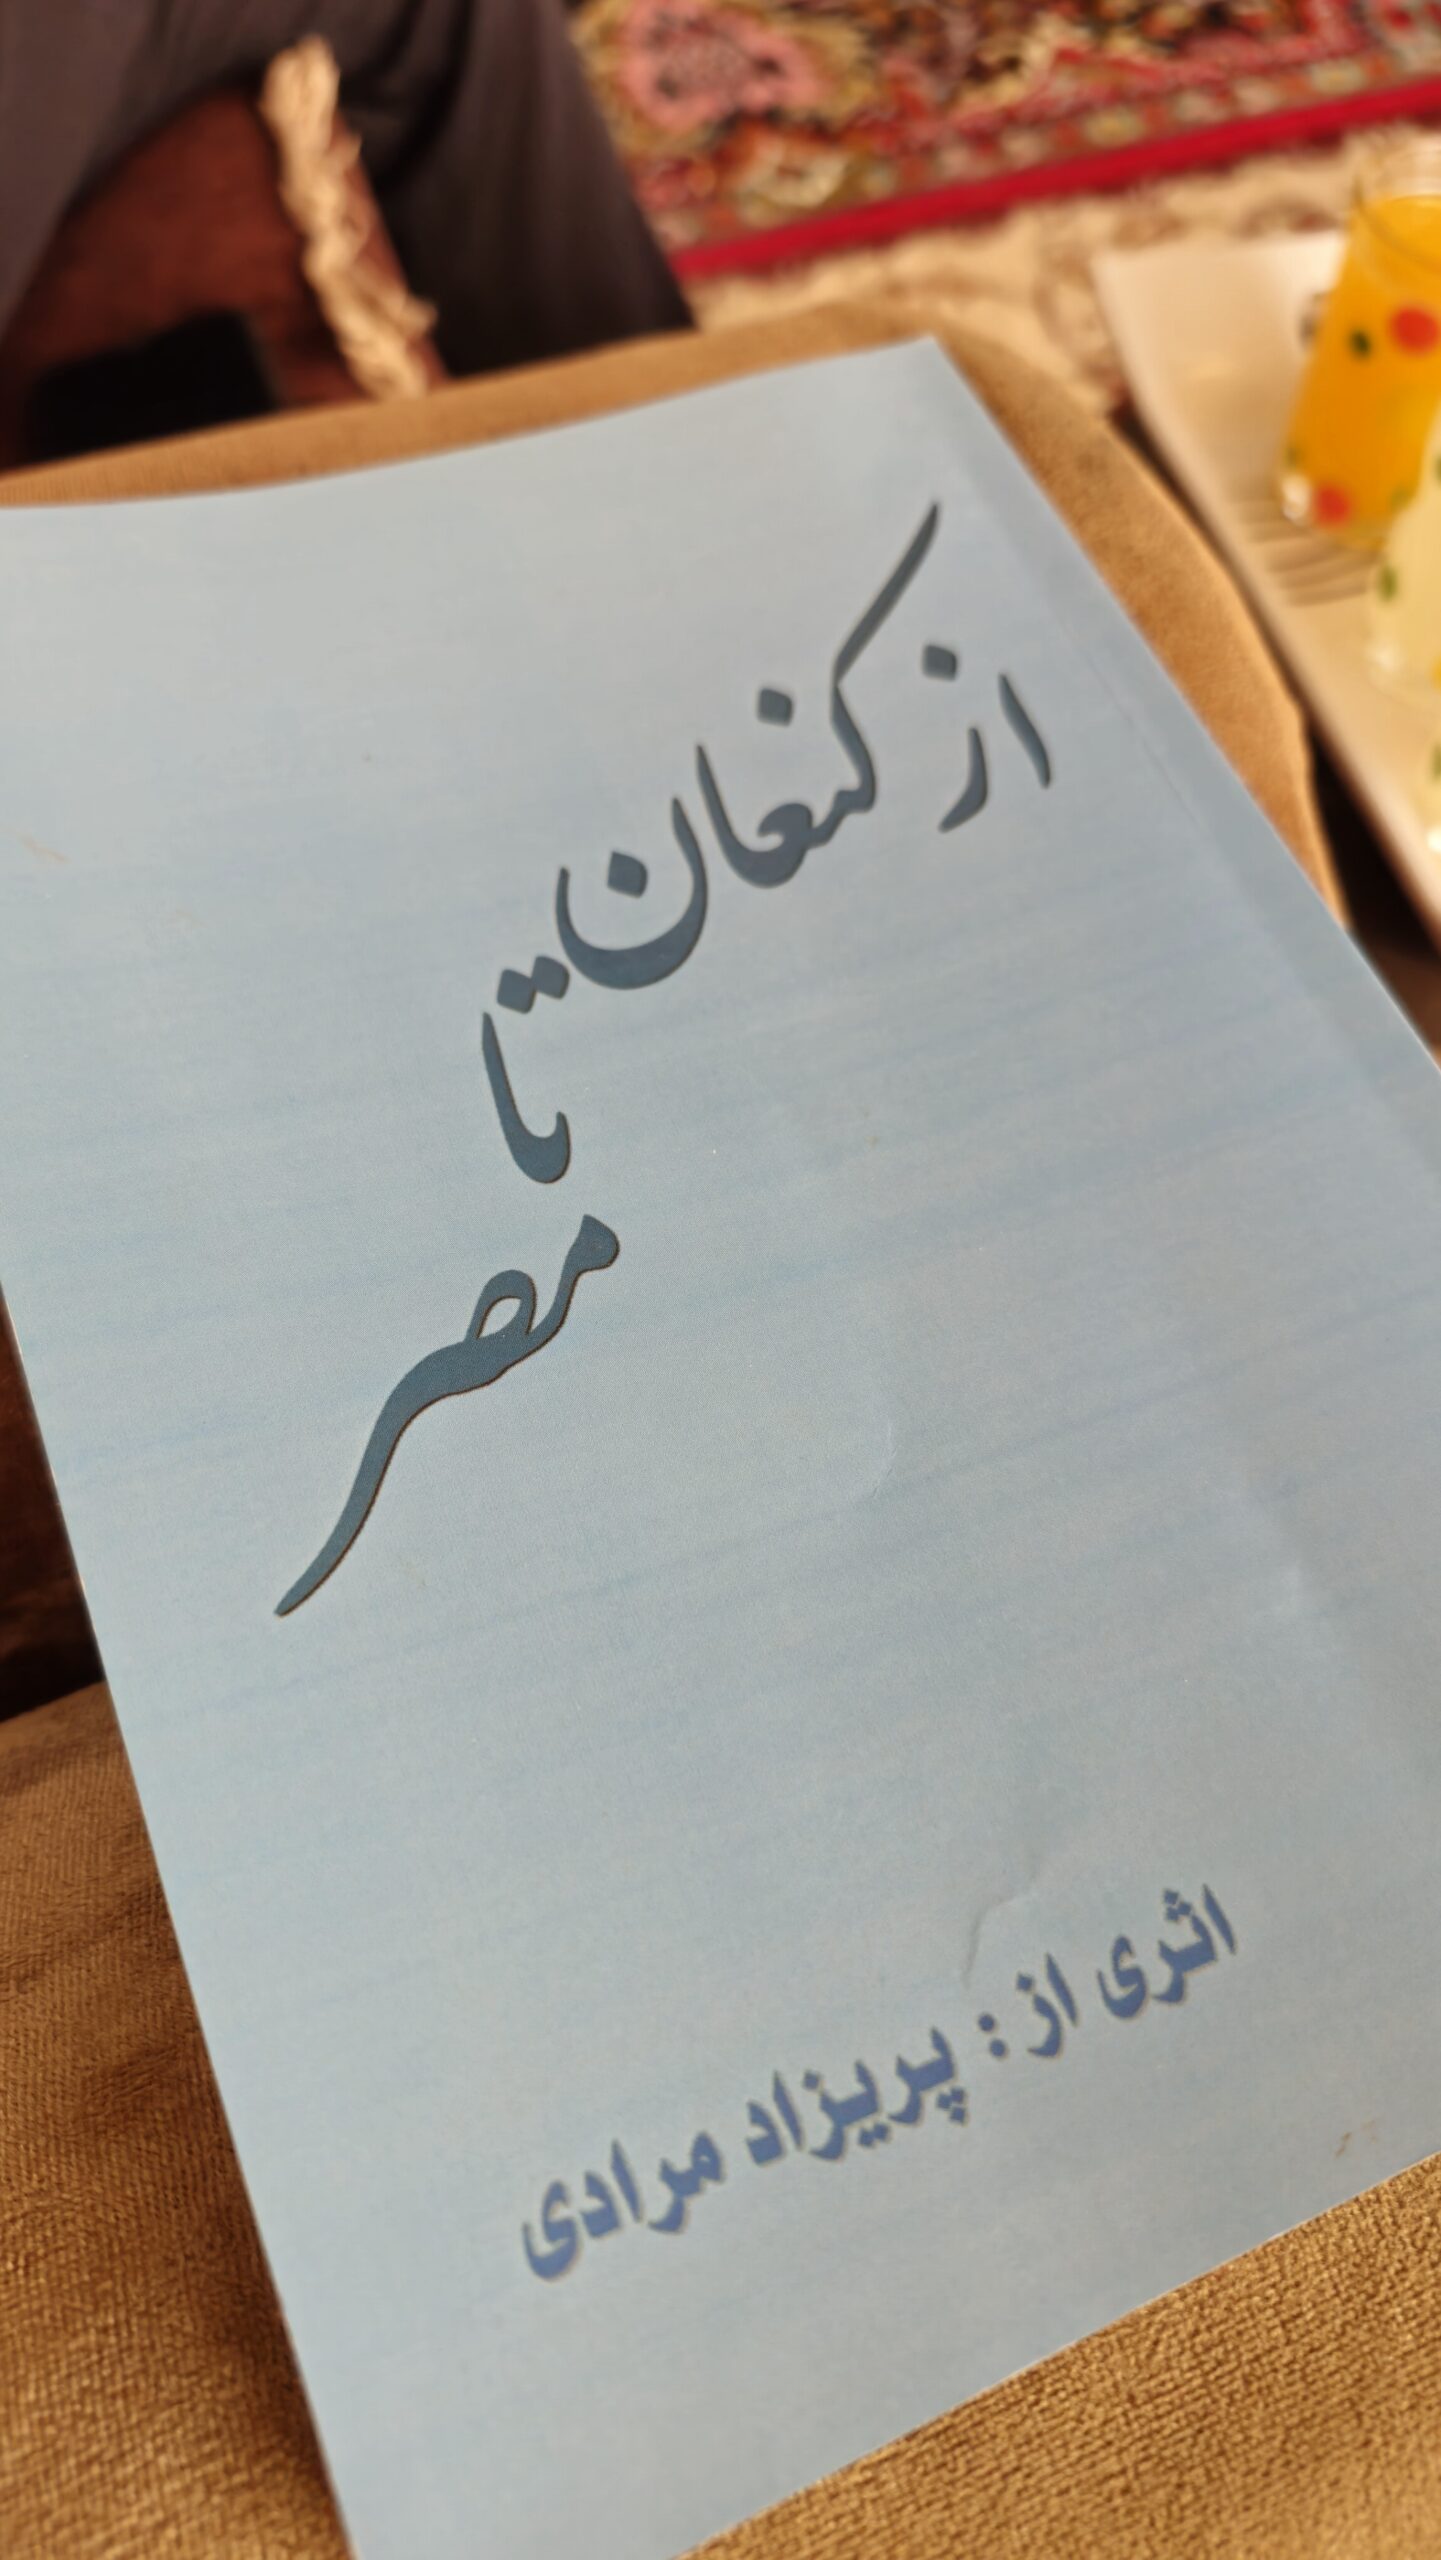 از کنعان تا
مصر
اثری از: پریزاد مرادی